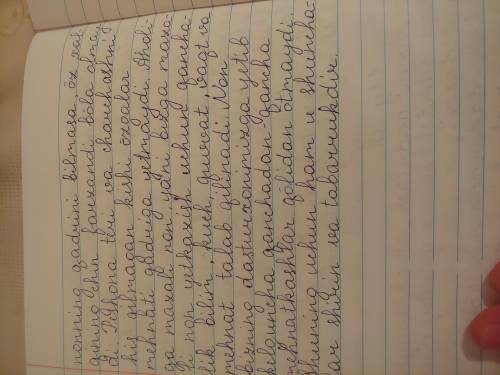 nonning qadrini bilmasa, öz xal
qining chin farzandi böla olmay
di. Peshona teri va charchashni
his qilmagan kishi özgalar
mehnati qadriga yetmaydi.
ga mazali non, yani bizga mazo
li non yetkazish uchun qancha
lik bilim, kuch, quvvat, vaqt va
mehnat talab qilinadi. Non
bizning dasturxonimizga yetib
kelguncha qanchadan-qancha
mehnatkashlar qölidan ötmaydi
shuning uchun ham u shuncha-
lar shirin va tabarrukdir.